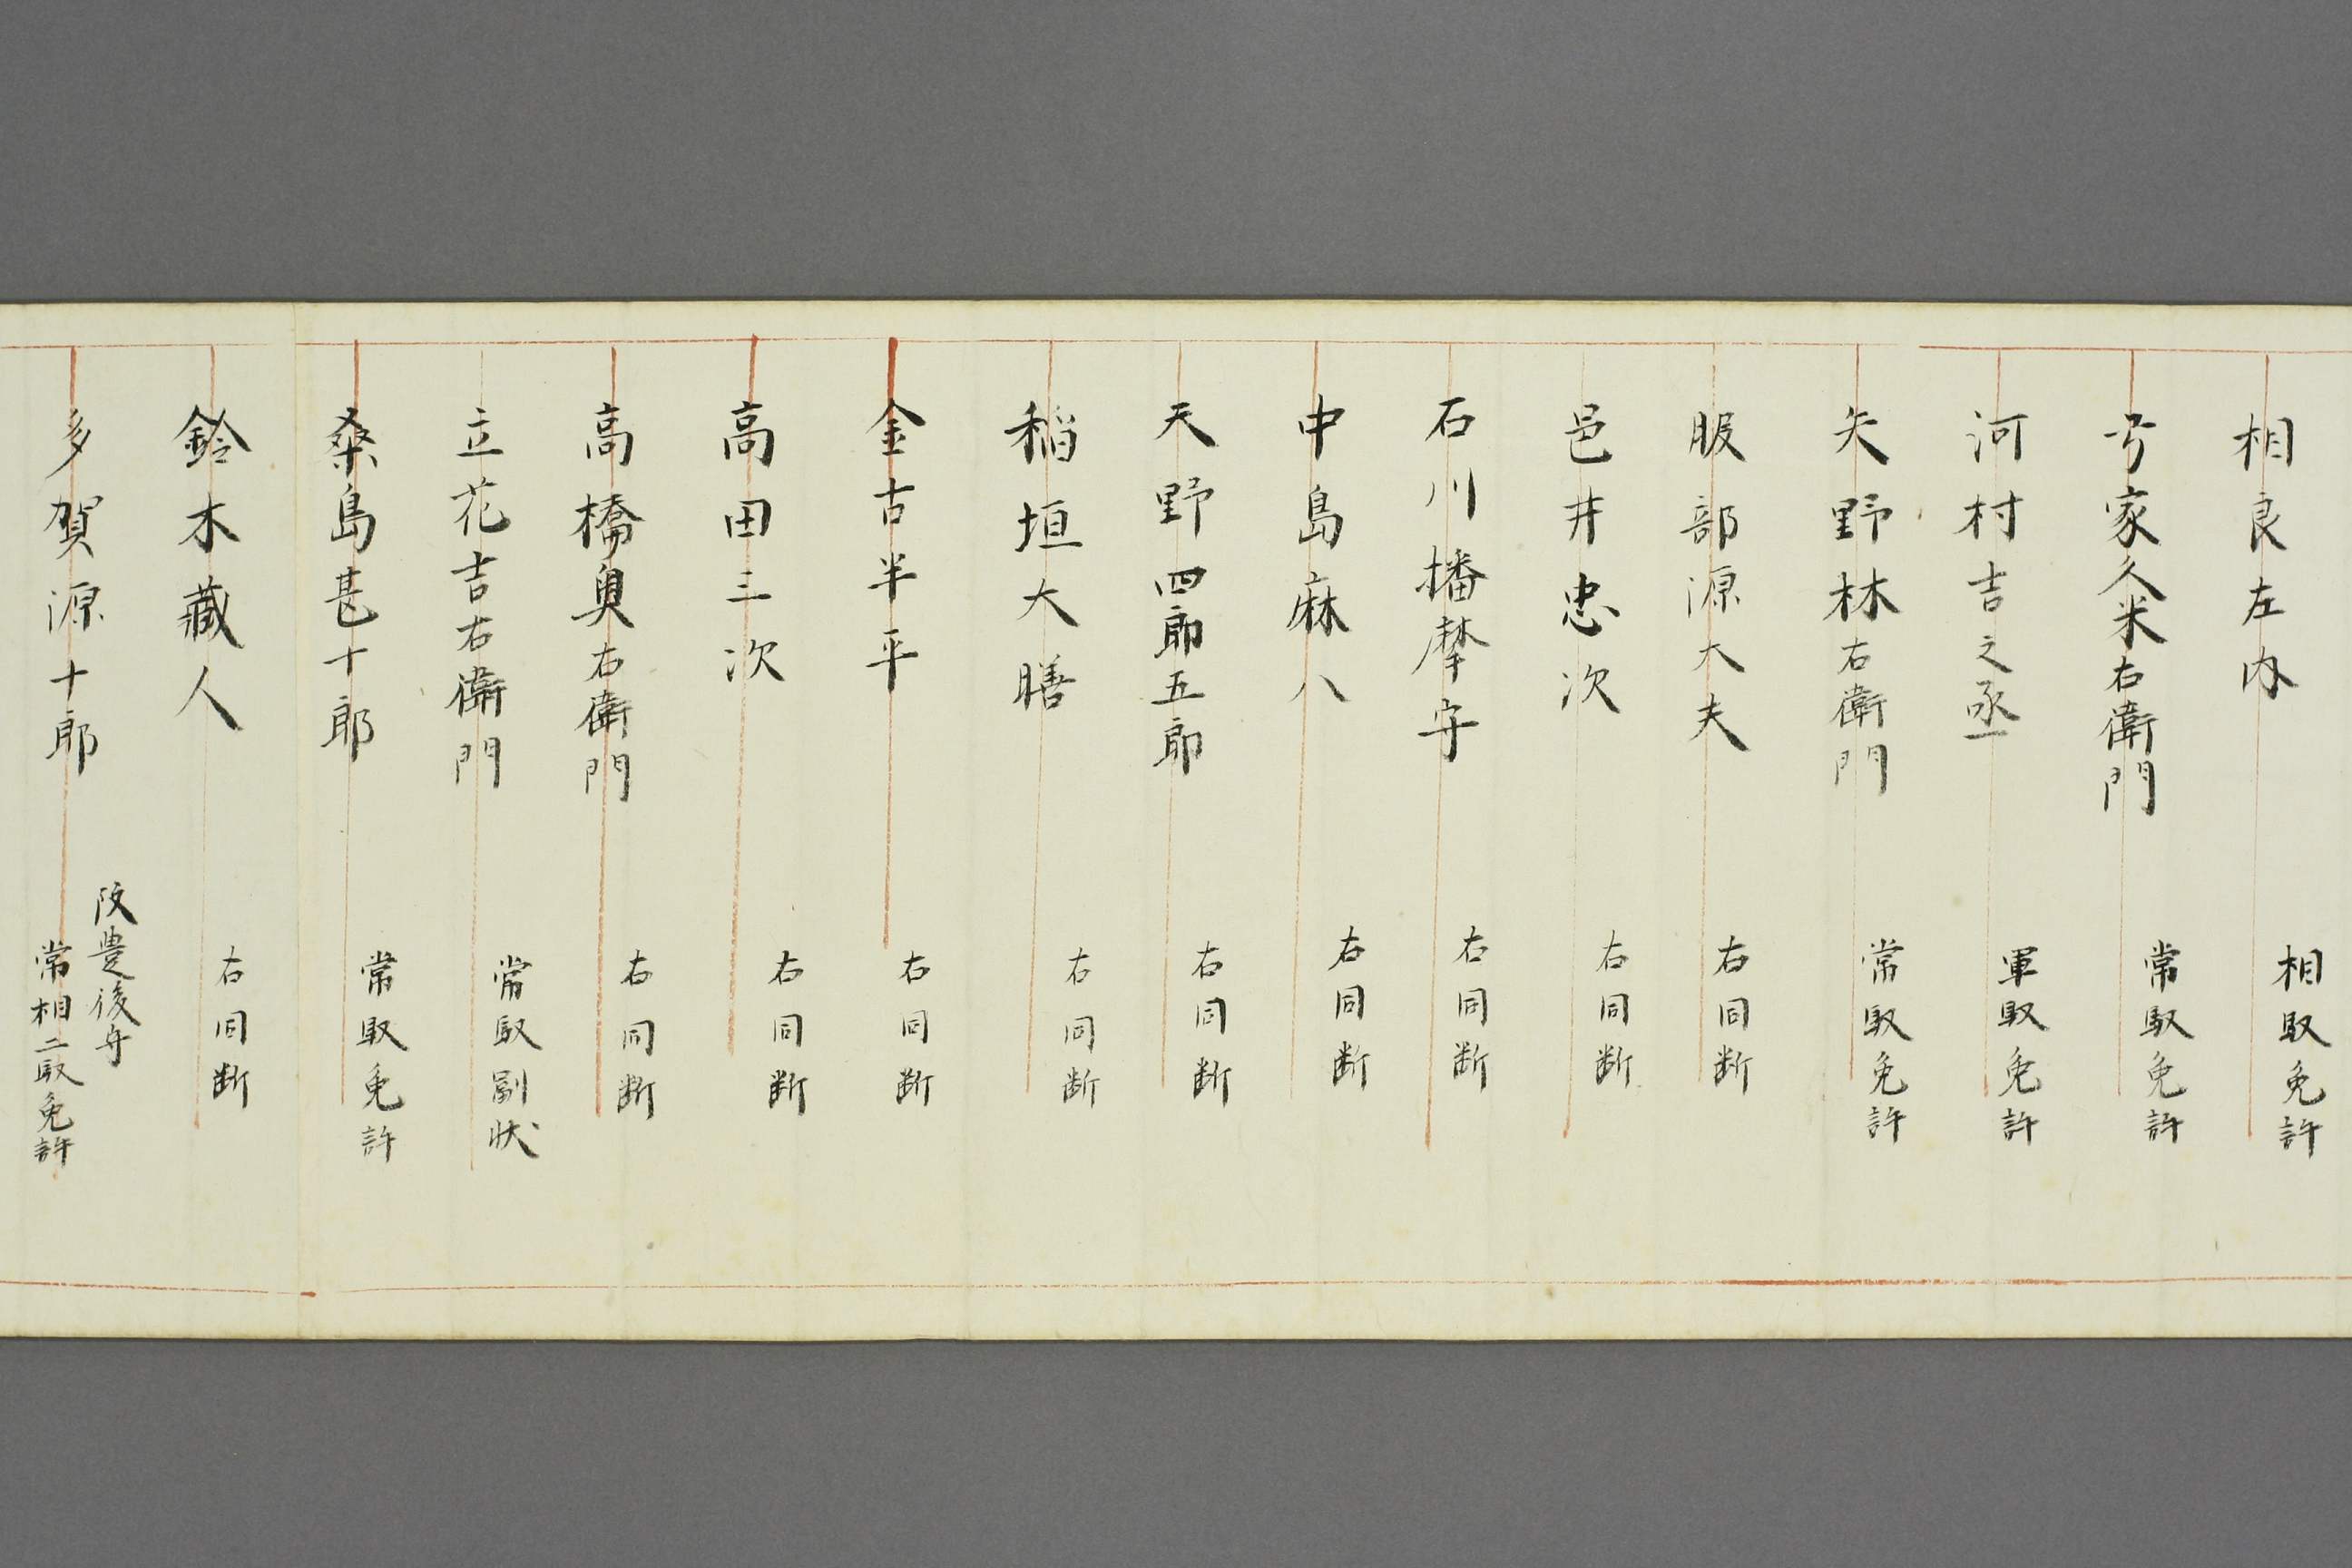 相良左内
相馭免許
弓家久米右衛門
常馭免許
河村吉之丞
軍馭免許
矢野林右衛門
常馭免許
服部源大夫
右同断
邑井忠次
右同断
石川播摩守
右同断
中島麻八
右同断
天野四郎五郎
右同断
稲垣大膳
右同断
金古半平
右同断
高田三次
右同断
高橋奥右衛門
右同断
立花吉右衛門
常馭副状
桑島甚十郎
常馭免許
鈴木蔵人
右同断
多賀源十郎
改豊後守
常相二馭免許